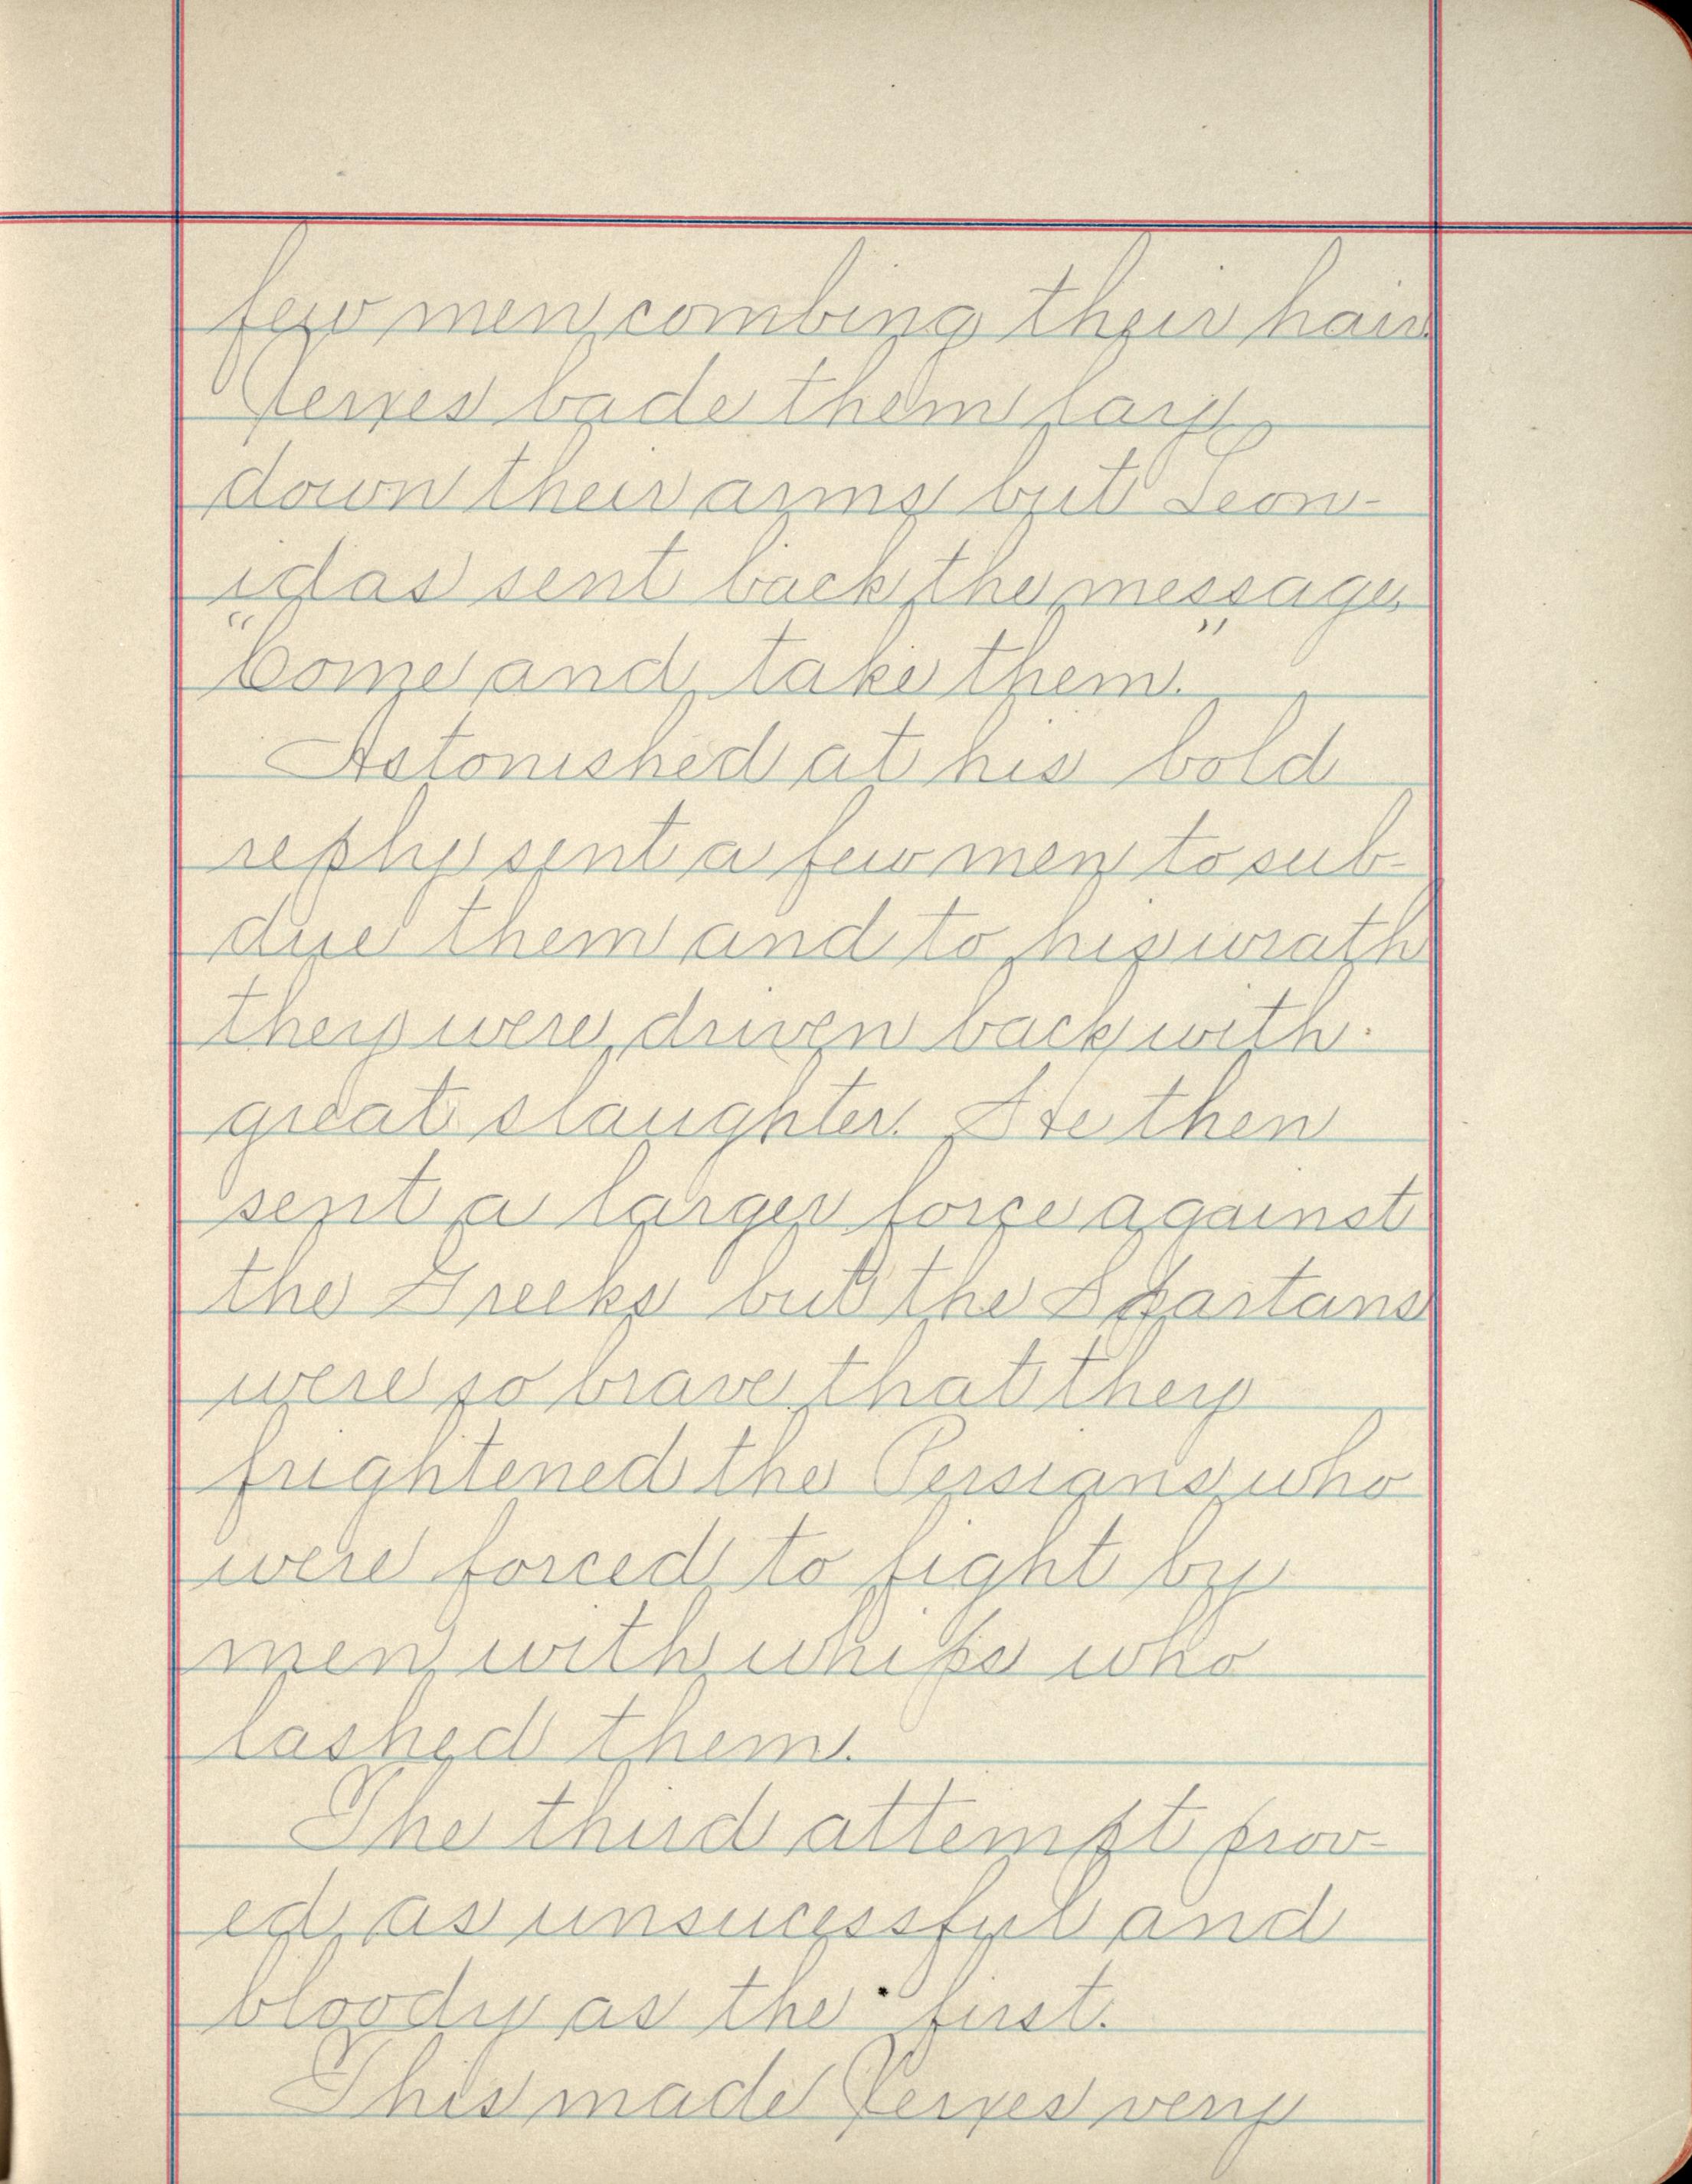 few men combing their hair.
Xerxes bade them lay
down their arms but Leon-
idas sent back the message,
"Come and take them."
Astonished at his bold
reply sent a few men to sub-
due them and to his wrath
they were driven back with
great slaughter. He then
sent a larger force against
the Greeks but the Spartans
were so brave that they
frightened the Persians who
were forced to fight by
men with whips who
lashed them.
The third attempt prov-
ed as unsucessful and
bloody as the first.
This made Xerxes very